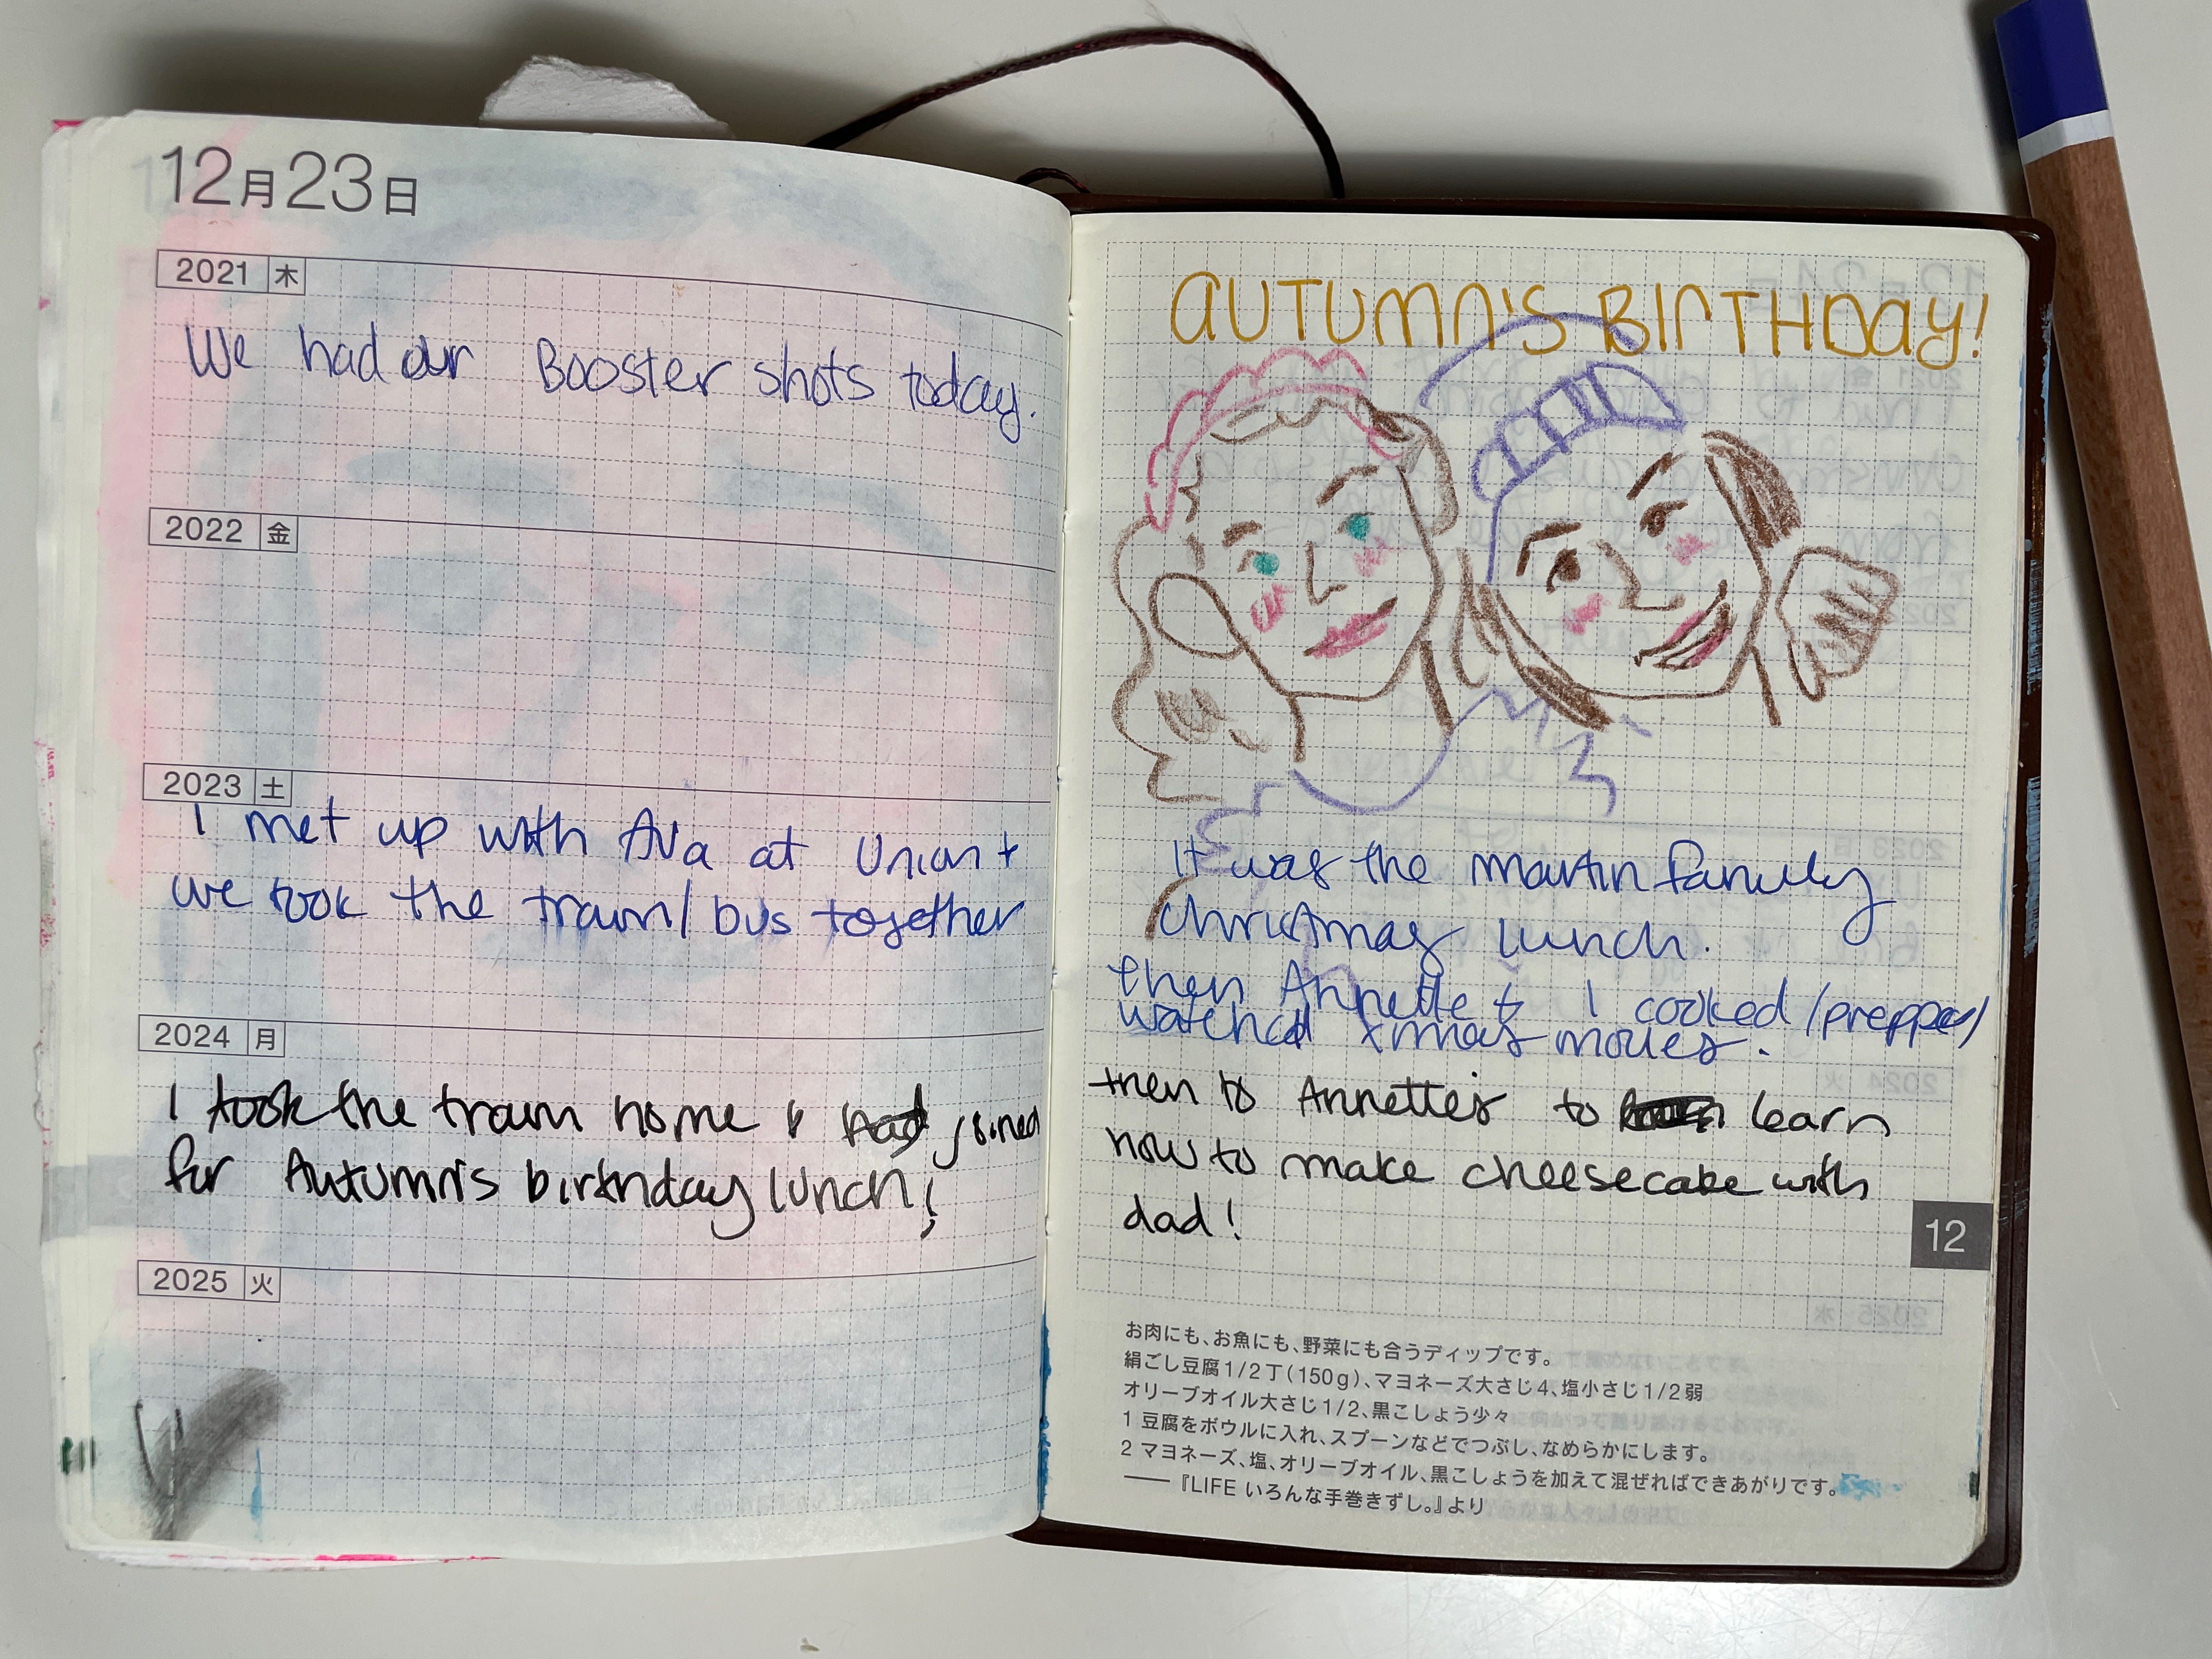 12月23日
2021 木
We had our Booster shots today.
2022 金
2023 土
I met up with Ava at Union +
we took the train/bus together
2024 月
I took the train home & had joined
for Autumn's birthday lunch!
2025 火
AUTUMN'S BIRTHDAY!
It was the Martin family
Christmas lunch.
then Annette & I cooked/prepped/
watched xmas movies.
then to Annette's to learn
how to make cheesecake with
dad!
12
お肉にも、お魚にも、野菜にも合うディップです。
絹ごし豆腐1/2丁(150g)、マヨネーズ大さじ4、塩小さじ1/2弱
オリーブオイル大さじ1/2、黒こしょう少々
1 豆腐をボウルに入れ、スプーンなどでつぶし、なめらかにします。
2 マヨネーズ、塩、オリーブオイル、黒こしょうを加えて混ぜればできあがりです。
——『LIFE いろんな手巻きずし。』より